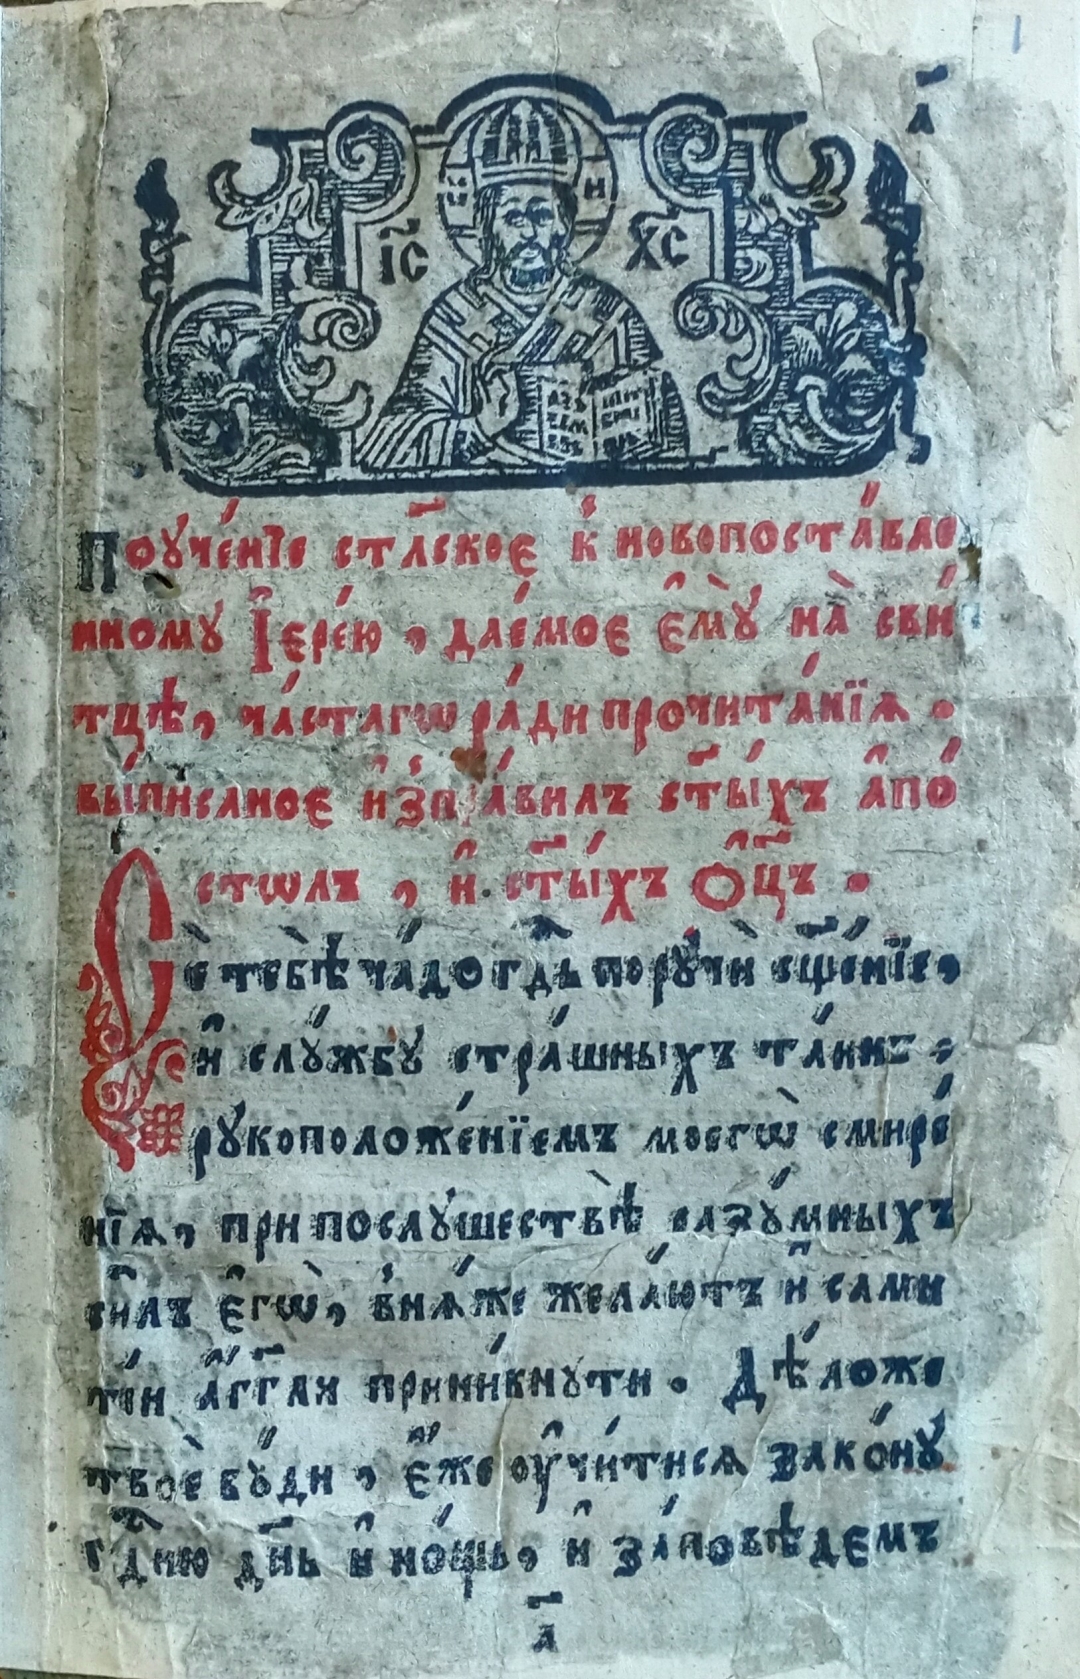 1
а҃
ѡ Н
І҃С Х҃С
Поꙋче́нїе ст҃лское к̾ новопоста́вле
нному І҆ере́ю , дае́мое є҆мꙋ̀ на̀ сви́
тцѣ, ча́стагѡ ра́ди прочита́нїѧ .
вы́писаное и҆з̾пра́вилъ ст҃ы́хъ а҆по́
столъ , и҆ ст҃ы́хъ Ѻ҆ц҃ъ .
Сѐ тебѣ̀ ча́до гд҇ь порꙋчѝ сщ҃е́нїе,
и҆ слꙋ́жбꙋ стра́шныхъ та́инъ ,
рꙋкоположе́нїемъ моегѡ̀ смире́
нїѧ, при послꙋ́шествѣ̀ разꙋ́мныхъ
си́лъ є҆гѡ̀, в̾нѧ́же жела́ютъ и҆ сами
тїи а҆́гг҃ли прини́кнꙋти . Дѣ́ло же
твоѐ бꙋ́ди , є҆́же оу҆чи́тисѧ зако́нꙋ
гд҇ню дн҃ь и҆ но́щь, и҆ за́повѣдемъ
а҃